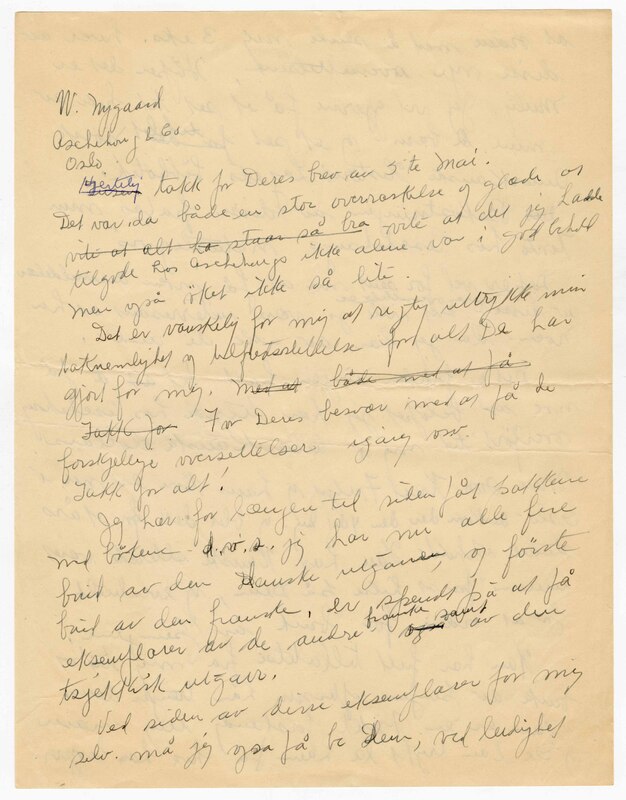 W. Nygaard
Aschehoug & Co
Oslo.
Hjertelig takk for Deres brev av 5te Mai.
Det var da både en stor overraskelse og glede at
vite at alt ha staar så bra vite at det jeg hadde
tilgode hos Aschehougs ikke alene var i god behold
men også øket ikke så lite.
Det er vanskelig for mig at rigtig uttrykke min
taknemlighet og tilfredsstillelse for alt De har
gjort for mig. Med at både med at få
Takk for For Deres besvær med at få de
forskjellige oversettelser igang osv.
Takk for alt!
Jeg har for længen til siden fåt pakkene
med bøkene d.v.s. jeg har nu alle fire
bind av den Danske utgaven, og første
bind av den franske, er spendt på at få
eksemplarer av de andre franske og samt av den
tsjekkisk utgave.
Ved siden av disse eksemplarer for mig
selv må jeg også få be Dem, ved leilighet